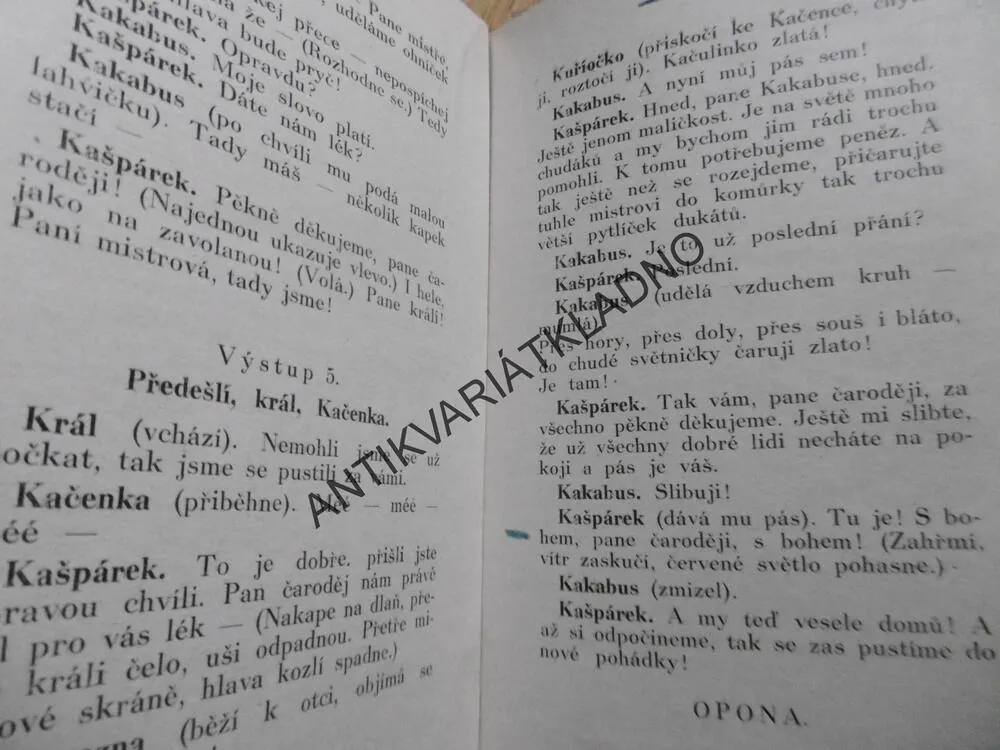 Pane mistře,
kej přece — uděláme ohníček
la že — nepospíchej
hlava bude pryč! (Rozhodne se.) Tedy
Kašpárek. Opravdu?
Kakabus. Moje slovo platí.
Kašpárek. Dáte nám lék?
Kakabus (po chvíli mu podá malou
lahvičku). Tady máš — několik kapek
stačí —
Kašpárek. Pěkně děkujeme, pane ča-
roději! (Najednou ukazuje vlevo.) I hele,
jako na zavolanou! (Volá.) Pane králi!
Paní mistrová, tady jsme!
Výstup 5.
Předešlí, král, Kačenka.
Král (vchází). Nemohli jsme se už
očkat, tak jsme se pustili za vámi.
Kačenka (přiběhne). Méé — méé —
éé —
Kašpárek. To je dobře, přišli jste
pravou chvíli. Pan čaroděj nám právě
l pro vás lék — (Nakape na dlaň, pře-
králi čelo, uši odpadnou. Přetře mi-
ové skráně, hlava kozlí spadne.)
(běží k otci, objímá se
Kuřiočko (přiskočí ke Kačence,
jí, roztočí ji). Kačulinko zlatá!
Kakabus. A nyní můj pás sem!
Kašpárek. Hned, pane Kakabuse, hned.
Ještě jenom maličkost. Je na světě mnoho
chudáků a my bychom jim rádi trochu
pomohli. K tomu potřebujeme peněz. A
tak ještě než se rozejdeme, přičarujte
tuhle mistrovi do komůrky tak trochu
větší pytlíček dukátů.
Kakabus. Je to už poslední přání?
Kašpárek. Poslední.
Kakabus (udělá vzduchem kruh —
mumlá)
Přes hory, přes doly, přes souš i bláto,
do chudé světničky čaruji zlato!
Je tam!
Kašpárek. Tak vám, pane čaroději, za
všechno pěkně děkujeme. Ještě mi slibte,
že už všechny dobré lidi necháte na po-
koji a pás je váš.
Kakabus. Slibuji!
Kašpárek (dává mu pás). Tu je! S bo-
hem, pane čaroději, s bohem! (Zahřmí,
vítr zaskučí, červené světlo pohasne.)
Kakabus (zmizel).
Kašpárek. A my teď vesele domů! A
až si odpočineme, tak se zas pustíme do
nové pohádky!
OPONA.
ANTIKVARIÁTKLADNO